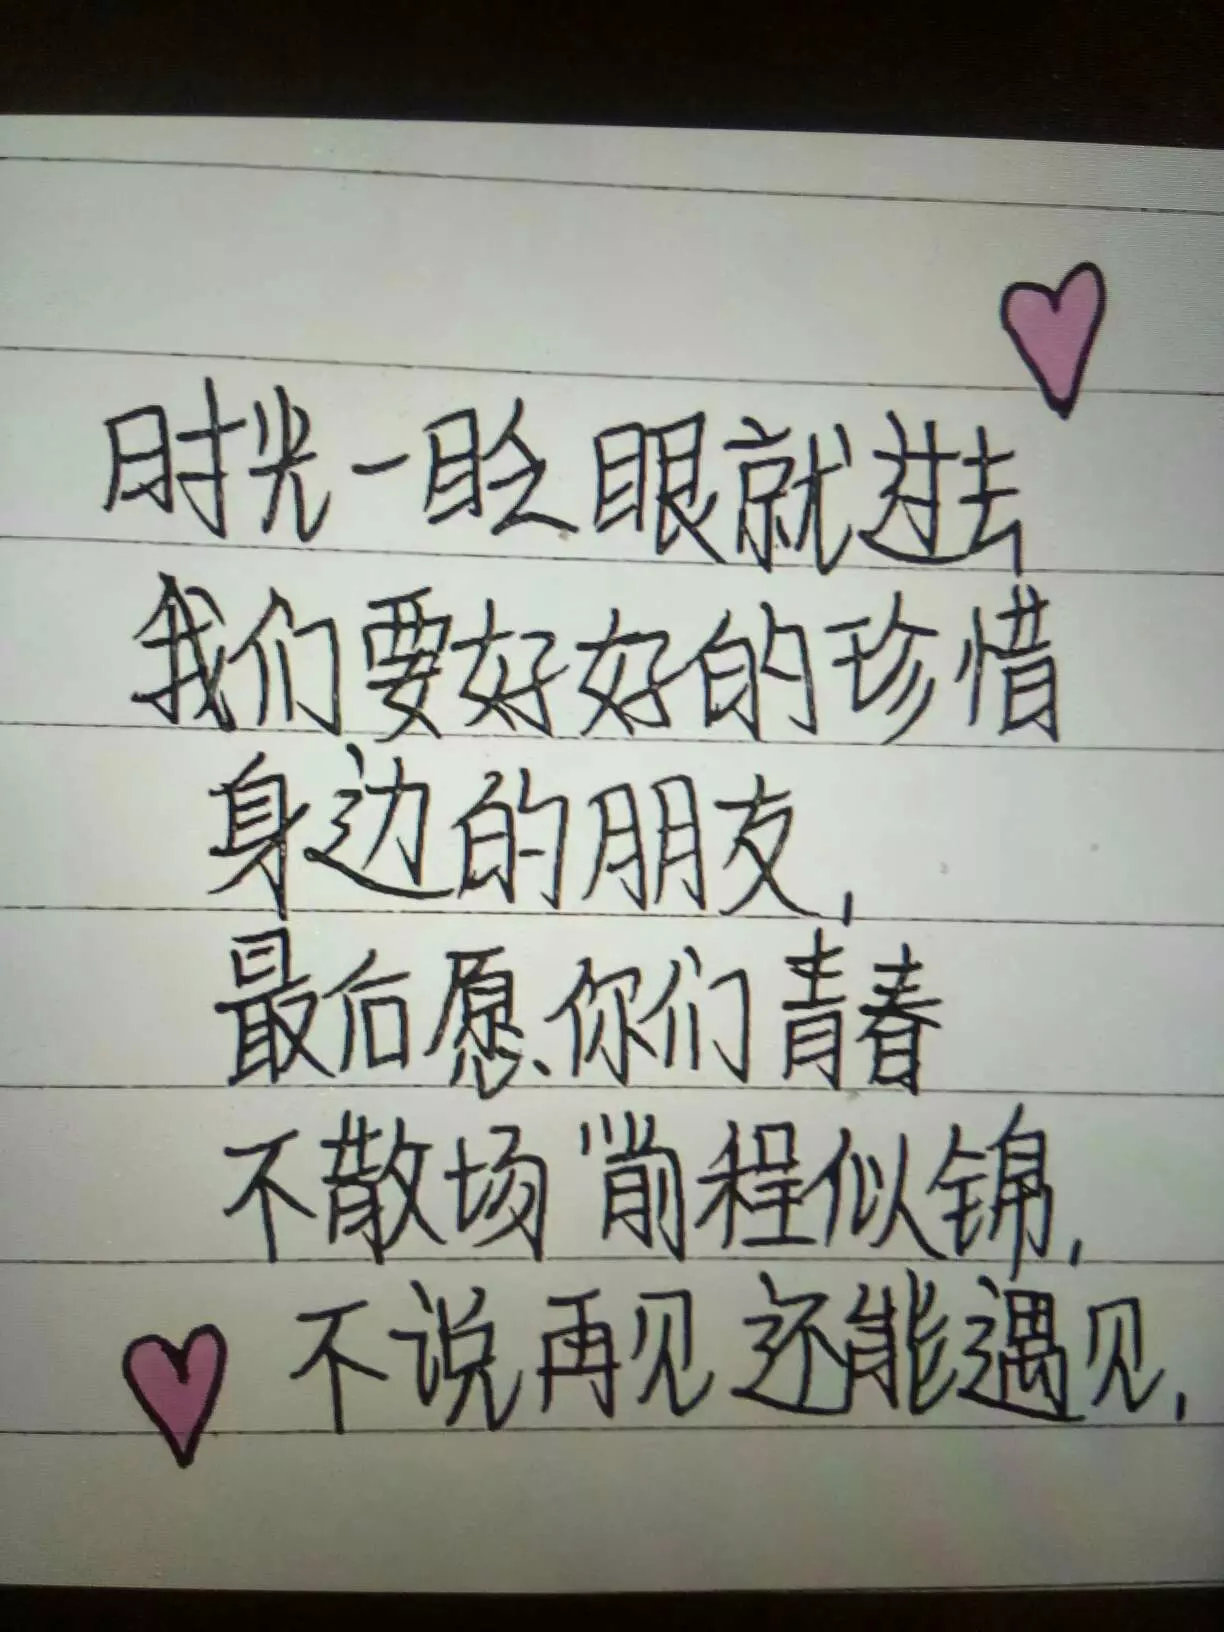 时光一眨眼就过去
我们要好好的珍惜
身边的朋友,
最后愿、你们青春
不散场 前程似锦,
不说再见还能遇见,